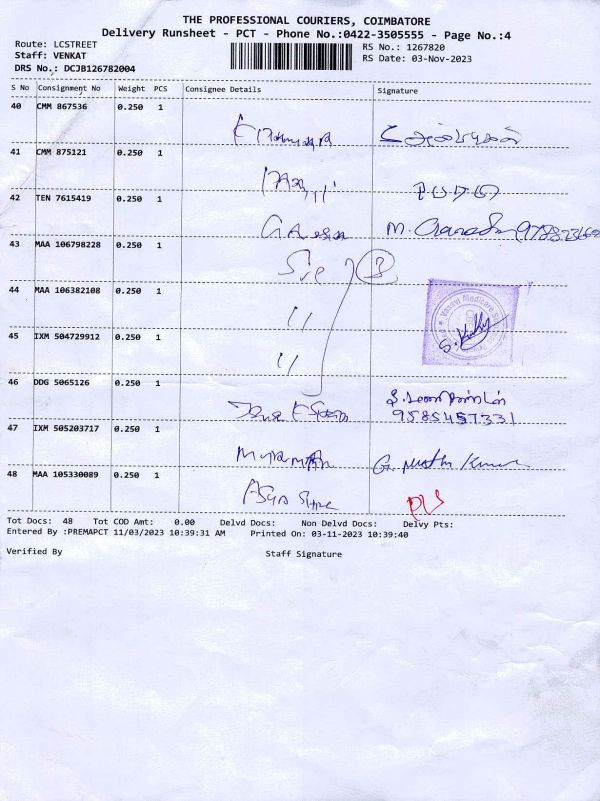 THE PROFESSIONAL COURIERS, COIMBATORE
Delivery Runsheet - PCT - Phone No.:0422-3505555 - Page No.:4
Route: LCSTREET
Staff: VENKAT
DRS No.: DCJB126782004
RS No.: 1267820
RS Date: 03-Nov-2023
S No Consignment No Weight PCS Consignee Details Signature
40 CMM 867536 0.250 1
41 CMM 875121 0.250 1
42 TEN 7615419 0.250 1
43 MAA 106798228 0.250 1 Sre 3
44 MAA 106382108 0.250 1 11
45 IXM 504729912 0.250 1 11
Vasavi Medicare
46 DDG 5065126 0.250 1
9585457331
47 IXM 505203717 0.250 1 G. Muthu Kumar
48 MAA 105330089 0.250 1
Tot Docs: 48 Tot COD Amt: 0.00 Delvd Docs: Non Delvd Docs: Delvy Pts:
Entered By :PREMAPCT 11/03/2023 10:39:31 AM Printed On: 03-11-2023 10:39:40
Verified By Staff Signature